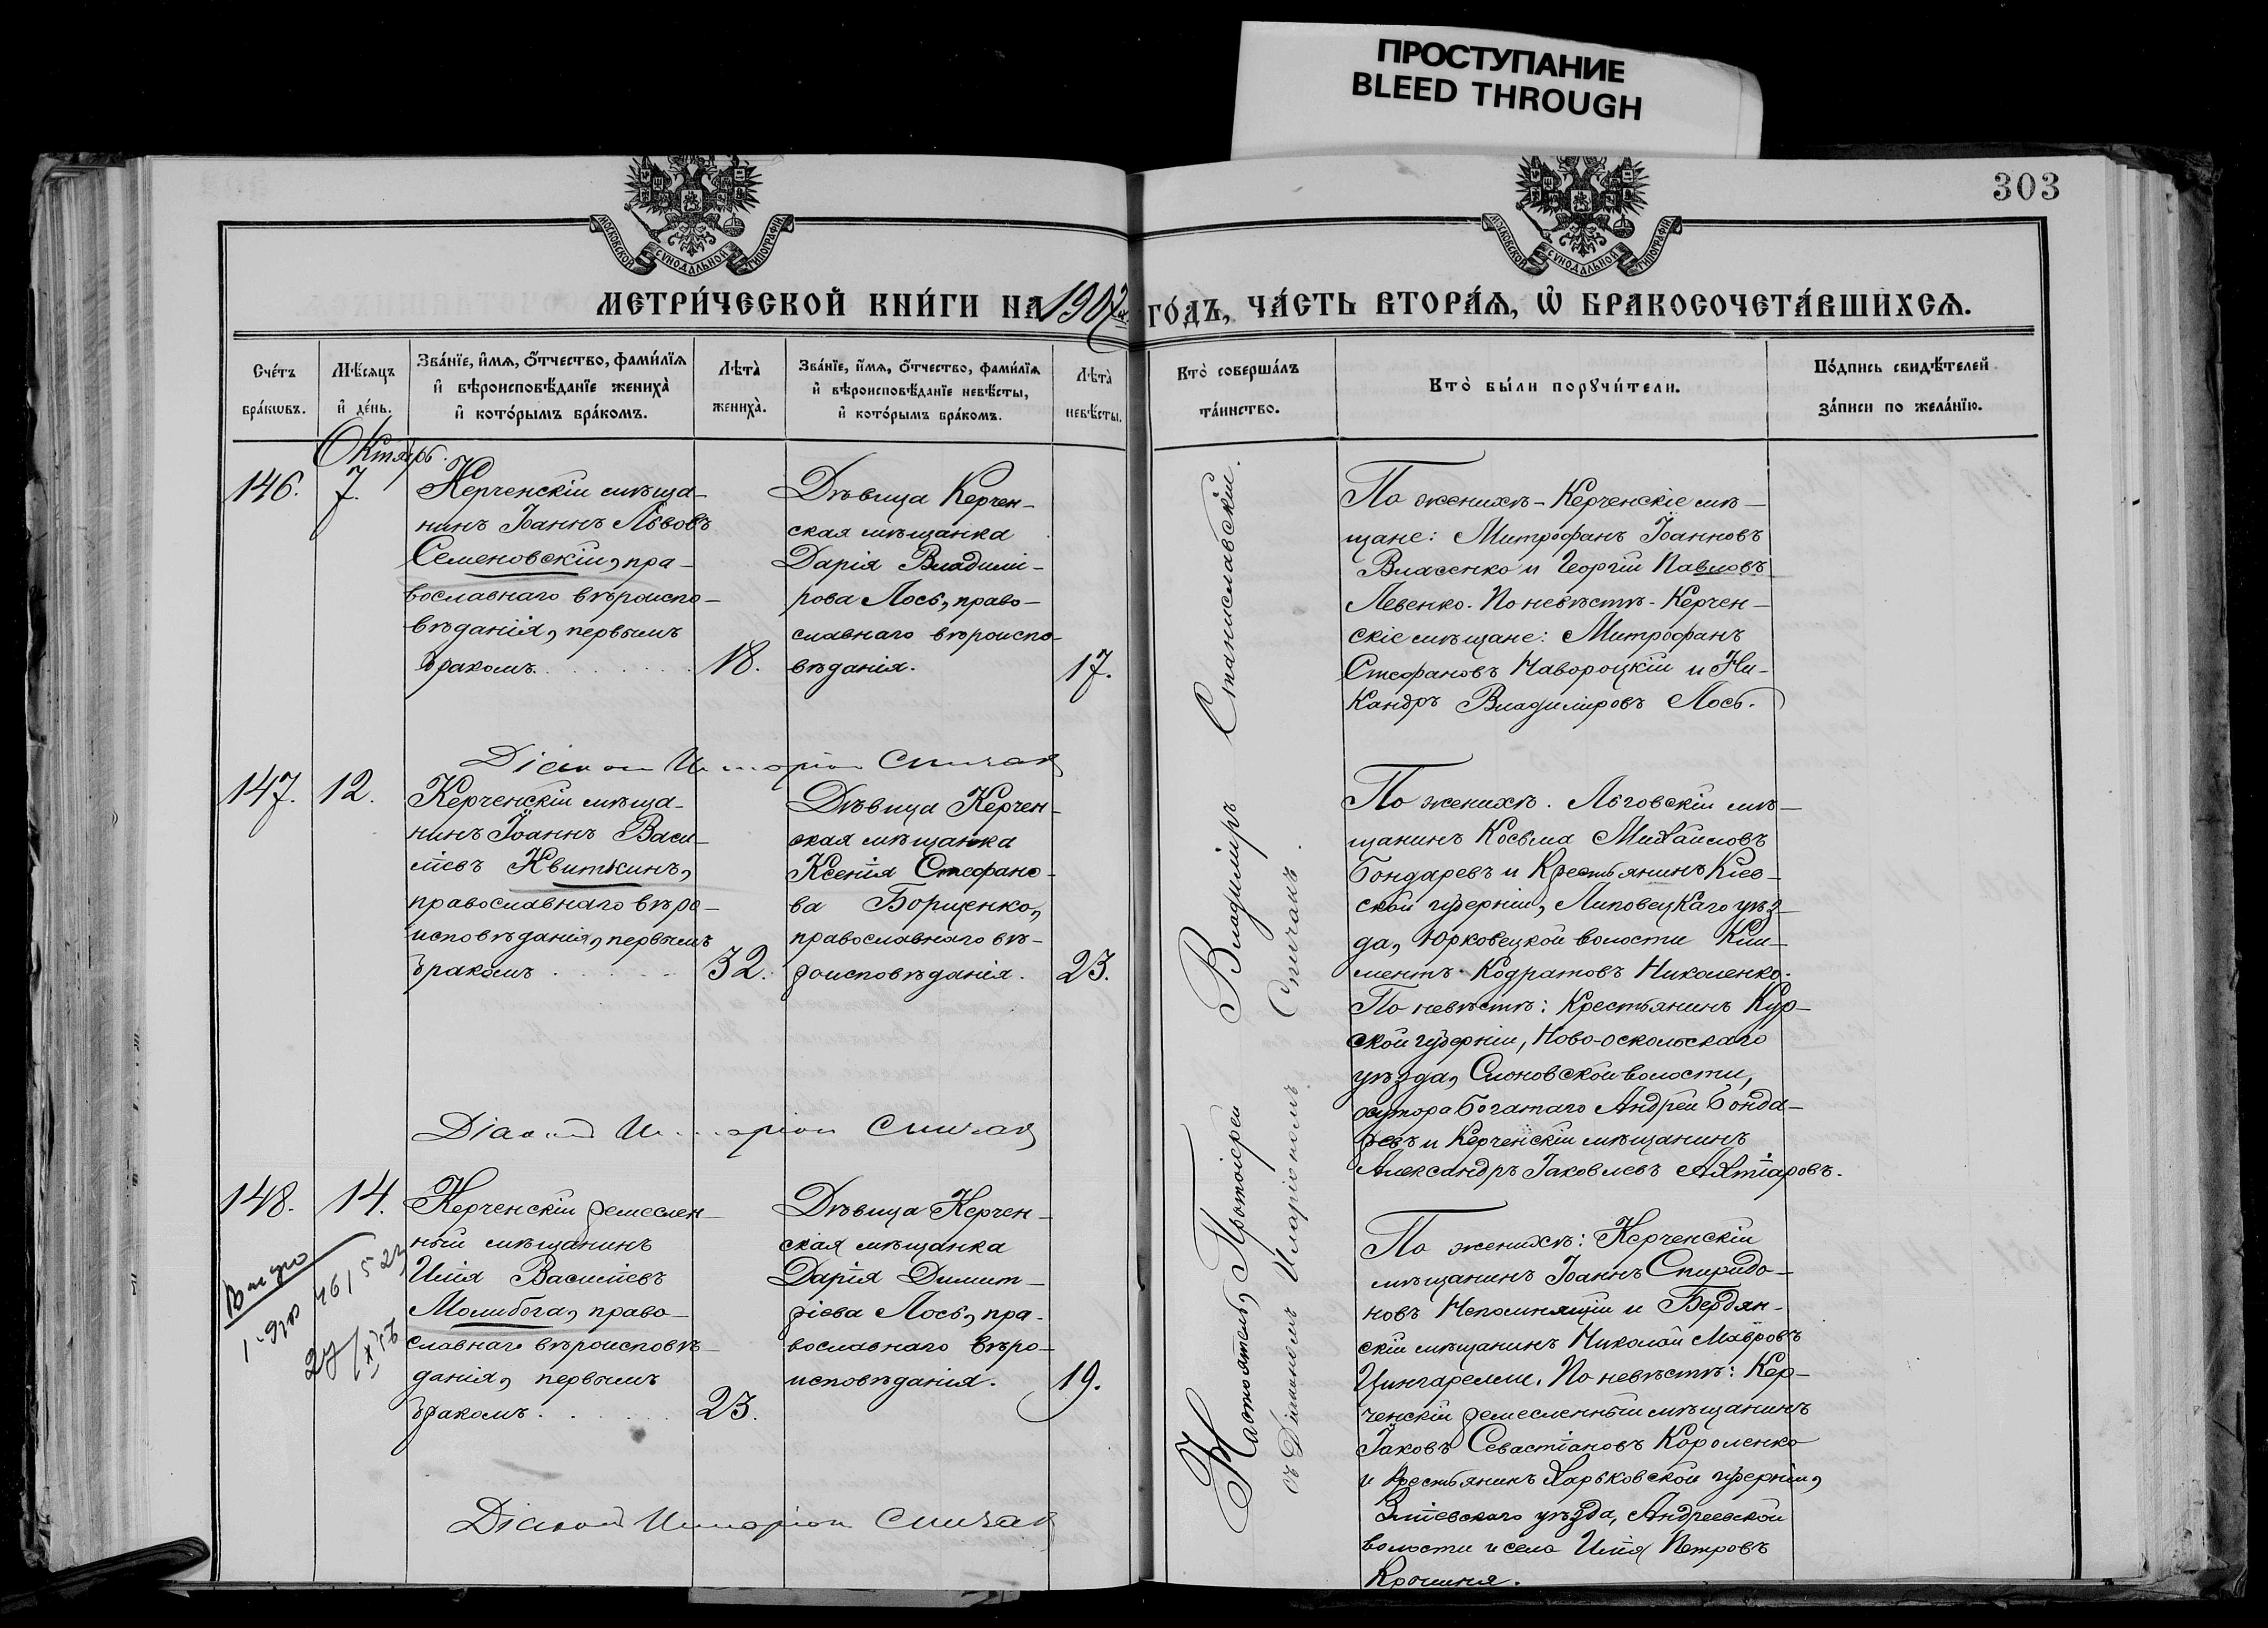 ПРОСТУПАНИЕ
BLEED THROUGH
303
МОСКОВСКОЙ СѴНОДАЛЬНОЙ ТИПОГРАФІИ
МОСКОВСКОЙ СѴНОДАЛЬНОЙ ТИПОГРАФІИ
МЕТРИ́ЧЕСКОЙ КНИ́ГИ НА 1902й ГО́ДЪ, ЧА́СТЬ ВТОРА́Ѧ, Ѽ БРАКОСОЧЕТА́ВШИХСѦ.
Сче́тъ
бра́кѡвъ.
Мѣ́сяцъ
и҆ де́нь.
Зва́нїе, и҆́мѧ, ѻ҆́тчество, фами́лїѧ
и҆ вѣроисповѣ́данїе жениха̀
и҆ кото́рымъ бра́комъ.
Лѣта̀
жениха̀.
Зва́нїе, и҆́мѧ, ѻ҆́тчество, фами́лїѧ
и҆ вѣроисповѣ́данїе невѣ́сты,
и҆ кото́рымъ бра́комъ.
Лѣта̀
невѣ́сты.
Кто̀ соверша́лъ
та́инство.
Кто̀ бы́ли порꙋчи́тели.
По́дпись свидѣ́телей
за́писи по жела́нїю.
Октябрь.
146.
7.
Керченскій мѣща-
нинъ Іоаннъ Львовъ
Семеновскій, пра-
вославнаго вѣроиспо-
вѣданія, первымъ
бракомъ.
18.
Дѣвица Керчен-
ская мѣщанка
Дарія Владимі-
рова Лось, право-
славнаго вѣроиспо-
вѣданія.
17.
По женихѣ - Керченскіе мѣ-
щане: Митрофанъ Іоанновъ
Власенко и Георгій Павловъ
Левенко. По невѣстѣ - Керчен-
скіе мѣщане: Митрофанъ
Стефановъ Навороцкій и Ни-
кандръ Владиміровъ Лось.
Діаконъ Иларіонъ Спичакъ
147.
12.
Керченскій мѣща-
нинъ Іоаннъ Васи-
ліевъ Квиткинъ,
православнаго вѣро-
исповѣданія, первымъ
бракомъ
32.
Дѣвица Керчен-
ская мѣщанка
Ксенія Стефано-
ва Борщенко,
православнаго вѣ-
роисповѣданія.
23.
По женихѣ. Льговскій мѣ-
щанинъ Косьма Михаиловъ
Бондаревъ и Крестьянинъ Кіев-
ской губерніи, Липовецкаго уѣз-
да, Юрковецкой волости Кли-
ментъ Кодратовъ Николенко.
По невѣстѣ: Крестьянинъ Кур-
ской губерніи, Ново-оскольскаго
уѣзда, Слоновской волости,
хутора Богатаго Андрей Бонда-
ревъ и Керченскій мѣщанинъ
Александръ Іаковлевъ Ахтіаровъ.
Діаконъ Иларіонъ Спичакъ
148.
14.
Керченскій ремеслен-
ный мѣщанинъ
Илія Василіевъ
Молибога, право-
славнаго вѣроисповѣ-
данія, первымъ
бракомъ.
23.
Дѣвица Керчен-
ская мѣщанка
Дарія Димит-
ріева Лось, пра-
вославнаго вѣро-
исповѣданія.
19.
По женихѣ: Керченскій
мѣщанинъ Іоаннъ Спиридо-
новъ Непомнящій и Бердян-
скій мѣщанинъ Николай Мавровъ
Цингарелли. По невѣстѣ: Кер-
ченскій ремесленный мѣщанинъ
Іаковъ Севастіановъ Короленко
и крестьянинъ Харьковской губерніи,
Зміевскаго уѣзда, Андреевской
волости и села Илія Петровъ
Діаконъ Иларіонъ Спичакъ
Настоятель, Протоіерей Владиміръ Станиславскій.
съ Діакономъ Иларіономъ Спичакъ.